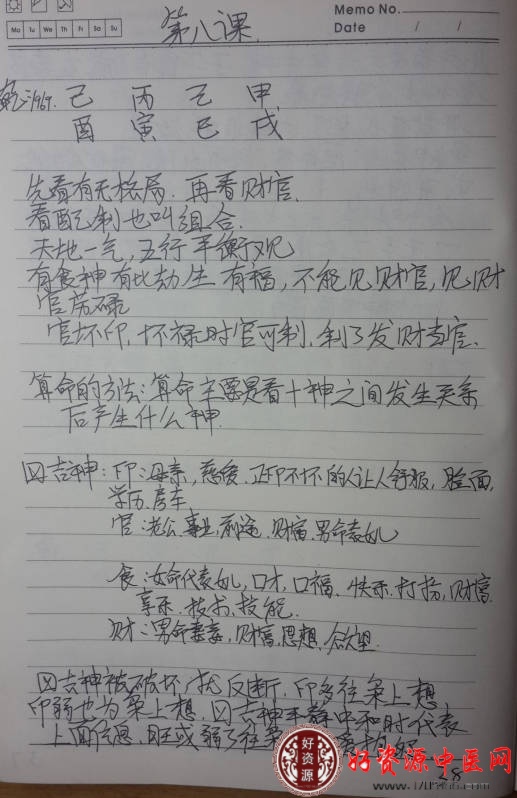 Memo No.
Mo Tu We Th Fr Sa Su
Date / /
第八课
乾:1969. 己 丙 乙 甲
酉 寅 巳 戌
先看有无格局. 再看财官.
看配制也叫组合.
天地一气, 五行平衡观
有食神有比劫生 有福, 不能见财官, 见财
官劳碌
官坏印, 坏禄时官可制, 制了发财当官.
算命的方法: 算命主要是看十神之间发生关系
后产生什么神
四吉神: 印: 母亲, 慈爱, 正印不坏的人让人舒服, 脸面,
学历, 房车
官: 老公, 事业, 前途, 财富, 男命表女儿
食: 女命代表女儿, 口才, 口福, 快乐, 打扮, 财富
享乐, 技术, 技能.
财: 男命妻, 财富, 思想, 欲望
四吉神被破坏, 就反断, 印多往枭上想
印弱也为枭上想. 四吉神平衡中和时代表
上面信息, 旺或弱了往
28
好资源
好资源中医网